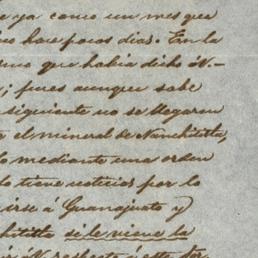 ya como un mes que
hace pocos dias. En la
que habia dicho á N—
; pues aunque sabe
siguiente no se llegaron
el mineral de Nanchititla,
mediante una orden
lo tiene noticias por lo
irse á Guanajuato y
si le viene la
respecto á este